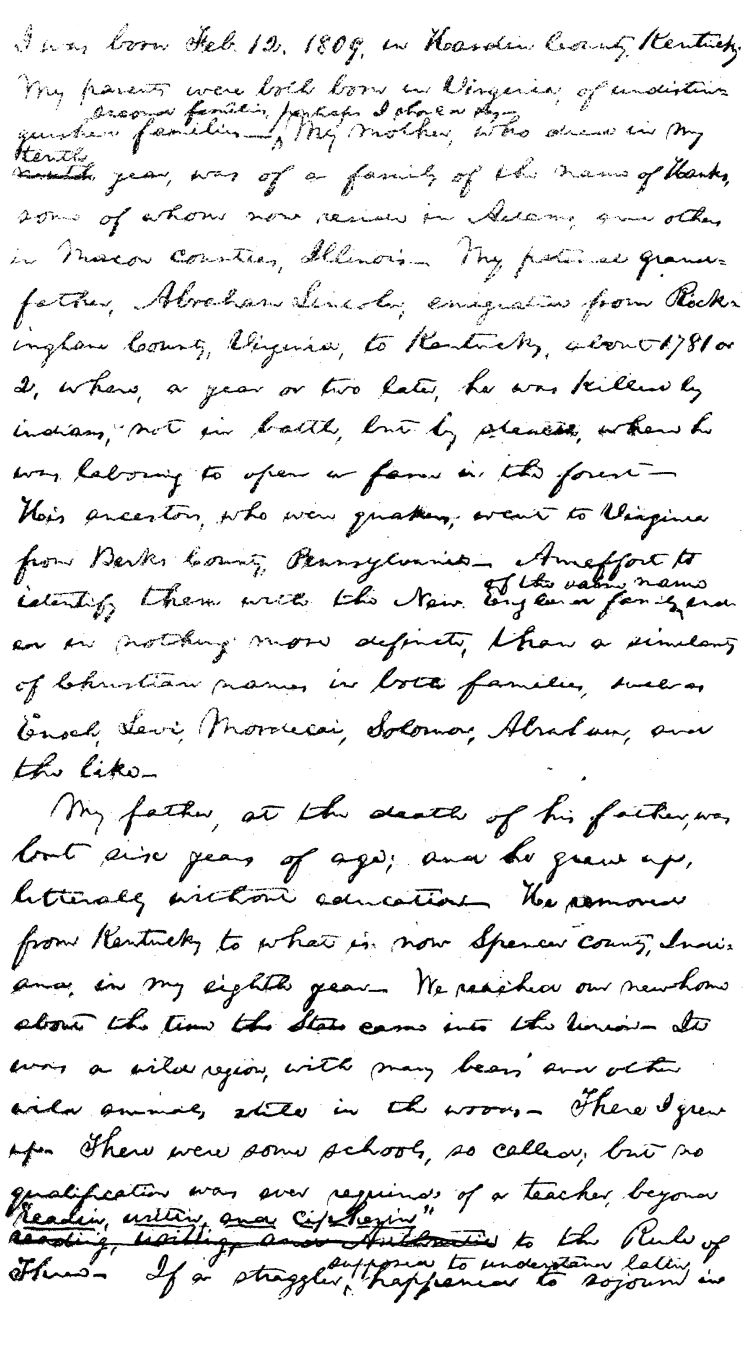 I was born Feb. 12, 1809, in Hardin County, Kentucky.
My parents were both born in Virginia, of undistin-
second families, perhaps I should say
guished families— My mother, who died in my
tenth
ninth year, was of a family of the name of Hanks,
some of whom now reside in Adams, and others
in Macon counties, Illinois— My paternal grand-
father, Abraham Lincoln, emigrated from Rock-
ingham County, Virginia, to Kentucky, about 1781 or
2, where, a year or two later, he was killed by
indians, not in battle, but by stealth, when he
was laboring to open a farm in the forest—
His ancestors, who were quakers, went to Virginia
from Berks County, Pennsylvania— An effort to
of the same name
identify them with the New England family end-
ed in nothing more definite, than a similarity
of Christian names in both families, such as
Enoch, Levi, Mordecai, Solomon, Abraham, and
the like—
My father, at the death of his father, was
but six years of age; and he grew up,
litterally without education— He removed
from Kentucky to what is now Spencer county, Indi-
ana, in my eighth year— We reached our new home
about the time the State came into the Union— It
was a wild region, with many bears and other
wild animals still in the woods— There I grew
up— There were some schools, so called; but no
qualification was ever required of a teacher, beyond
"readin, writin, and cipherin"
reading, writing, and Arithmetic to the Rule of
supposed to understand latin,
Three— If a straggler happened to sojourn in